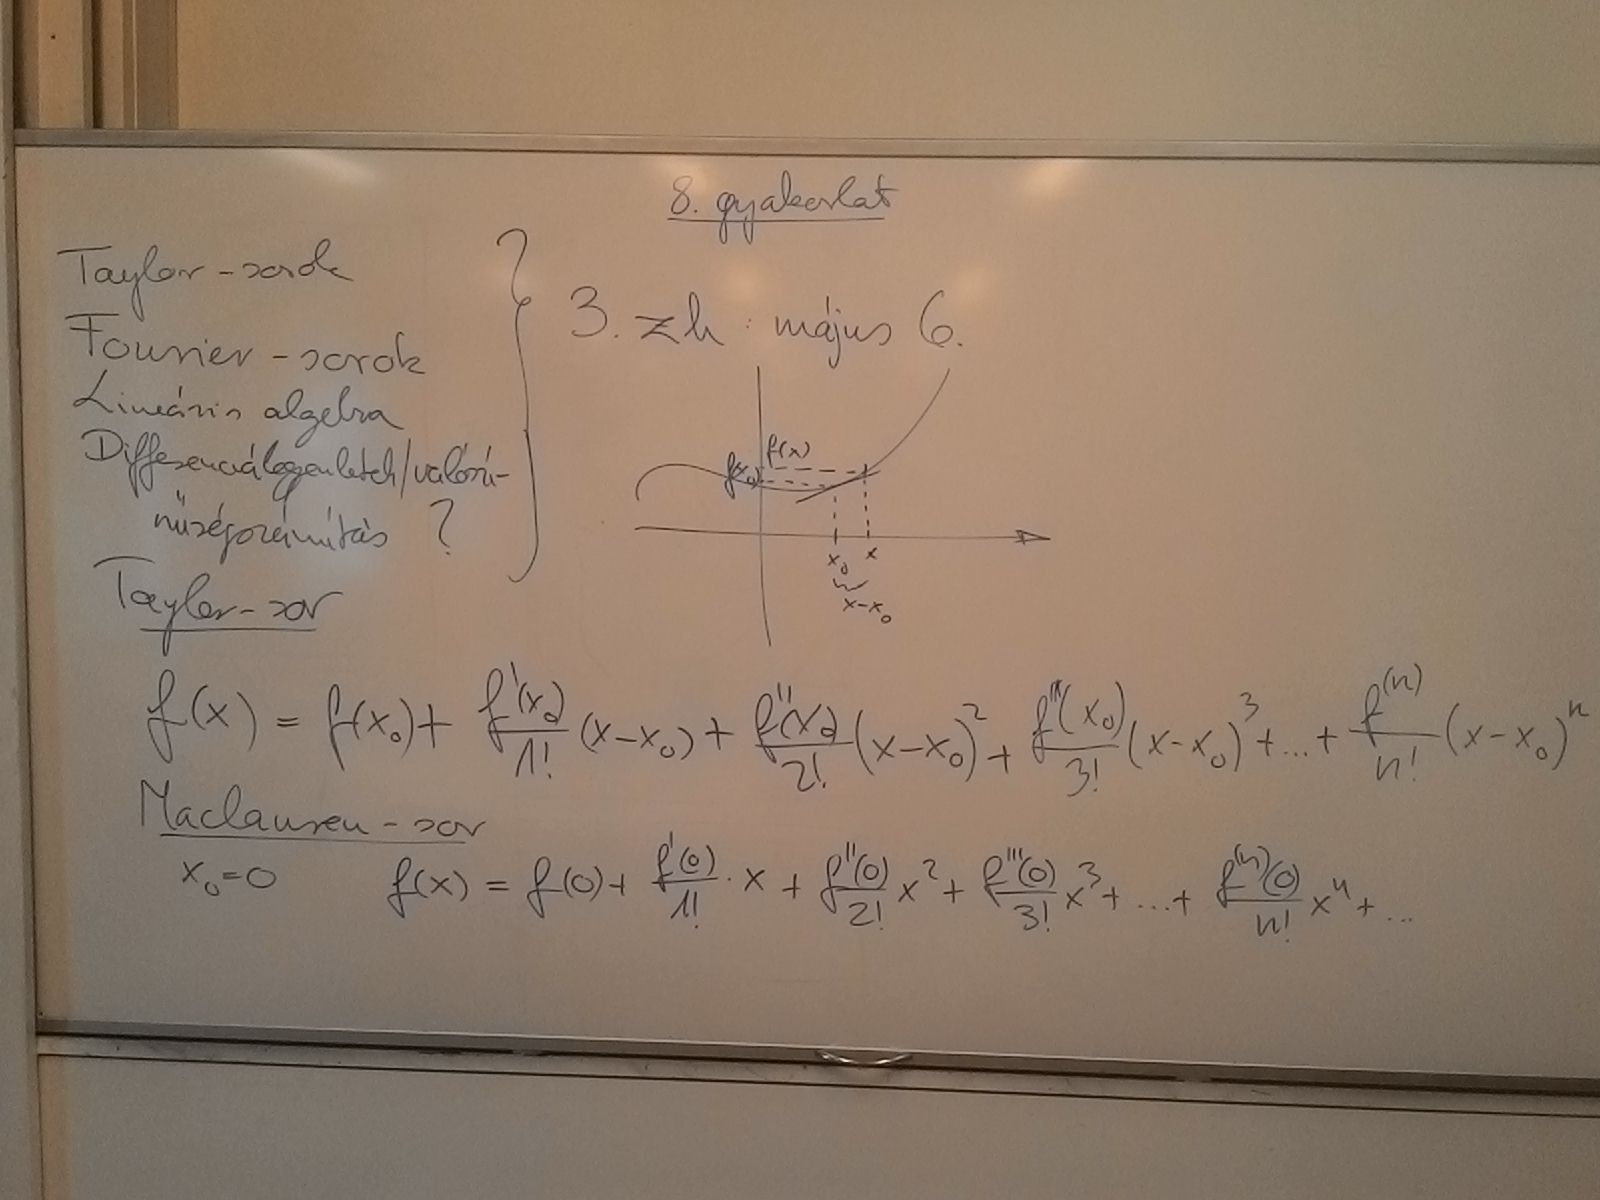 8. gyakorlat
Taylor-sorok
Fourier-sorok
Lineáris algebra
Differenciálegyenletek/valószí-
nűségszámítás ?
3. zh : május 6.
f(x)
f(x₀)
x₀ x
x-x₀
Taylor-sor
f(x) = f(x₀) + f'(x₀)/1! (x-x₀) + f''(x₀)/2! (x-x₀)² + f'''(x₀)/3! (x-x₀)³ + ... + f⁽ⁿ⁾/n! (x-x₀)ⁿ
Maclauren-sor
x₀=0 f(x) = f(0) + f'(0)/1! · x + f''(0)/2! x² + f'''(0)/3! x³ + ... + f⁽ⁿ⁾(0)/n! xⁿ + ...